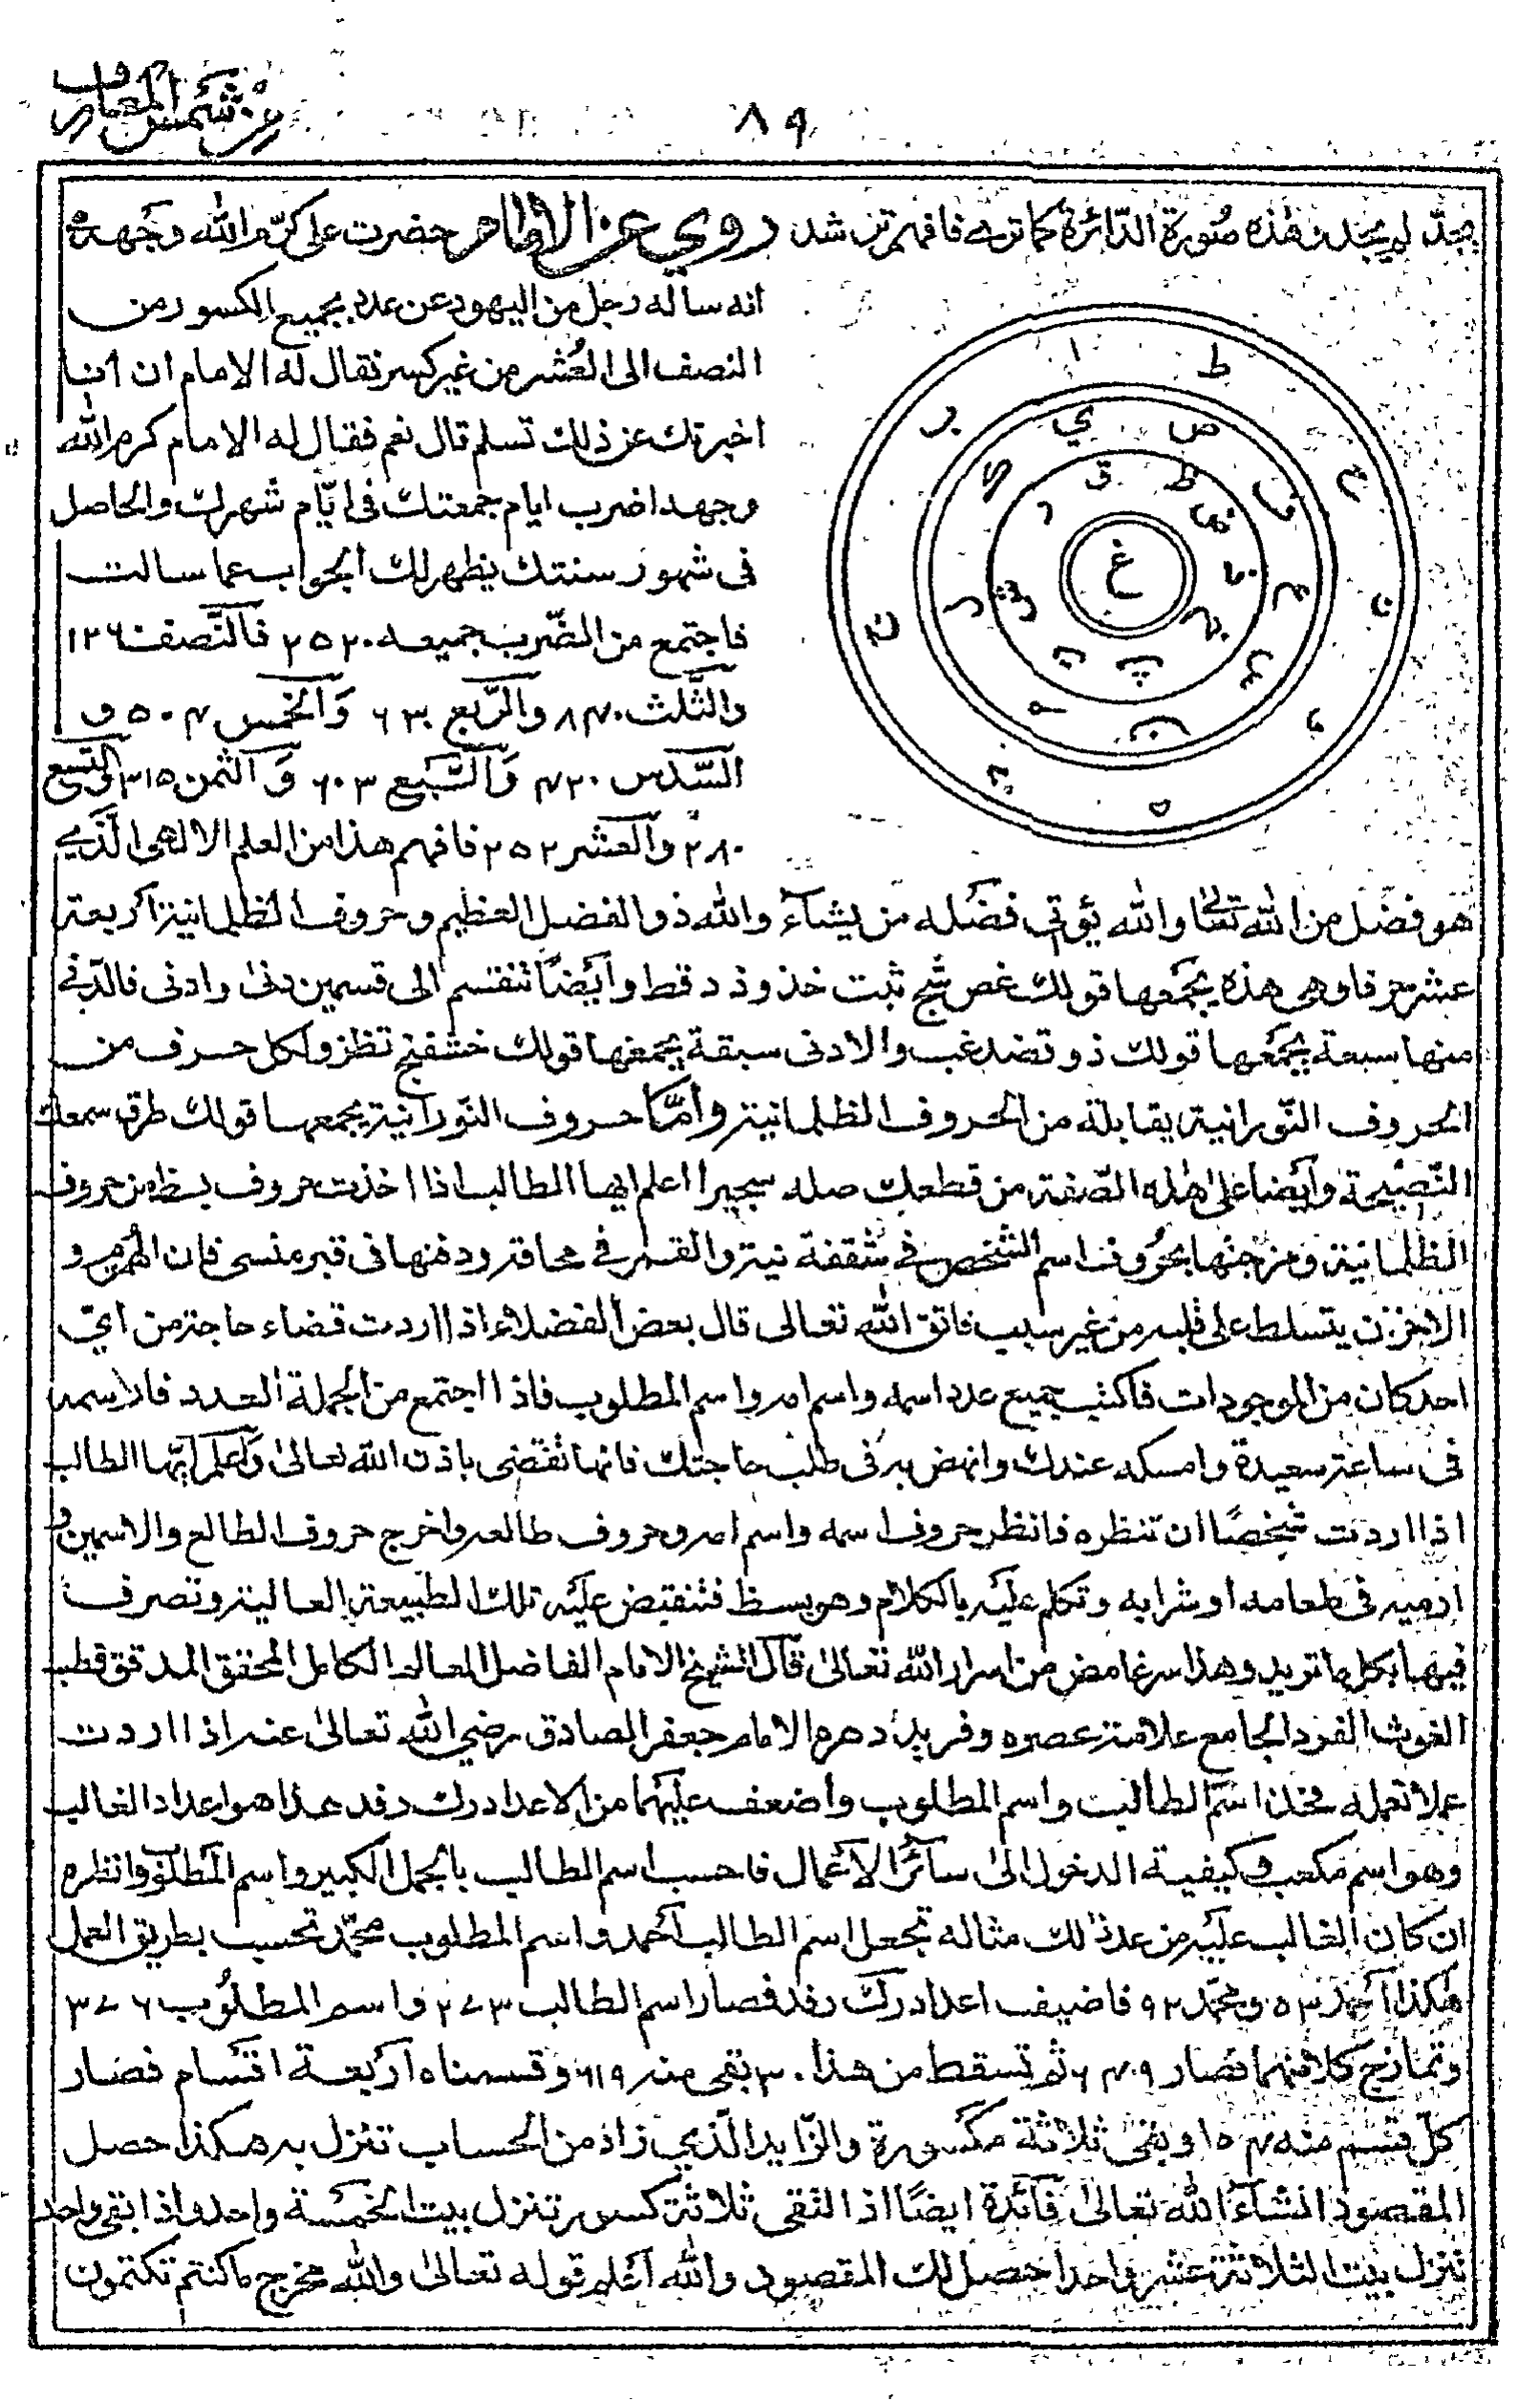 من شمس المعارف
٨٩
يجدّ له يجد وهذه صورة الدّائرة كما ترى فافهم ترشد روي عن الامام حضرت على كرّم الله وجهه
انه ساله رجل من اليهود عن عدد يجميع الكسور من
النصف الى العُشر من غير كسر فقال له الامام ان انا
اخبرتك عن ذلك تسلم قال نعم فقال له الامام كرم الله
وجهه اضرب ايام جمعتك فى ايّام شهرك والحاصل
فى شهور سنتك يظهر لك الجواب عما سالت
فاجتمع من الضّرب جميعه ٢٥٢٠ فالنّصف ١٢٦٠
والثّلث ٨٤٠ والرّبع ٦٣٠ وَالخمس ٥٠٤ و
السّدس ٤٢٠ وَالسّبع ٣٦٠ وَالثمن ٣١٥ والتسع
٢٨٠ وَالعشر ٢٥٢ فافهم هذا من العلم الالهى الّذي
ا
ط
ي
ص
ق
ظ
ر
غ
هو فضل من الله تعالى والله يؤتي فضله من يشآء والله ذو الفضل العظيم وحروف الظلمانية اربعة
عشر حرفا وهى هذه يجمعها قولك غص شج ثبت خذ وذ دقط وايضًا تنقسم الى قسمين دنى وادنى فالدّنى
منها سبعة يجمعها قولك ذو تضد غب والادنى سبقة يجمعها قولك خشفنج تظز ولكل حرف من
الحروف النّورانية يقابلة من الحروف الظلمانية وأمّا حروف النّورانية يجمعها قولك طرق سمعك
النّصيحة وأيضا على هذه الصّفة من قطعك صله سحيرا اعلم ايها الطالب اذا اخذت حروف بسظه من حروف
الظلمانية ومزجتها بحروف اسم الشخص في شقفة نية والقمر في محاقه ودفنها فى قبر منسى فان الهموم و
الاحزان يتسلط على قلبه من غير سبب فاتق الله تعالى قال بعض الفضلاء اذا اردت قضاء حاجة من ايّ
احد كان من الموجودات فاكتب جميع عدد اسمه واسم امه واسم المطلوب فاذا اجتمع من الجملة العدد فلاسمه
فى ساعة سعيدة وامسكه عندك وانهض به فى طلب حاجتك فانها تقتضى باذن الله تعالى وَاعلم ايّها الطالب
اذا اردت شخصًا ان تنظره فانظر حروف اسمه واسم امه وحروف طالعه واخرج حروف الطالع والاسمين و
ارميه فى طعامه او شرابه وتكلم عليه بالكلام وهو بسظ فتنقبض عليه تلك الطبيعة العالية وتصرف
فيها بكل ما تريد وهذا سر غامض من اسرار الله تعالى قال الشيخ الامام الفاضل العالم الكامل المحقق المدقق قطب
الغوث الفرد الجامع علامة عصره وفريد دهره الامام جعفر الصادق رضي الله تعالى عنه اذا اردت
عملا تعمله فخذ اسم الطالب واسم المطلوب واضعف عليهما من الاعداد رك رفد هذا هو اعداد الغالب
وهو اسم مكعب فى كيفية الدخول الى سآئر الاعمال فاحسب اسم الطالب بالجمل الكبير واسم المطلوب وانظره
ان كان الغالب عليه من عدد ذلك مثاله تجعل اسم الطالب احمد واسم المطلوب محمّد تحسب بطريق العمل
هكذا احمد ٥٣ ومحمّد ٩٢ فاضيف اعداد رك رفد فصار اسم الطالب ٢٧٣ واسم المطلوب ٣٧٦
وتمازج كلاهما فصار ٦٤٩ ثم تسقط من هذا ٣٠ بقى منه ٦١٩ وقسمناه اربعة اقسام فصار
كلّ قسم منه ١٥٤ وبقى ثلاثة مكسورة والزّايد الّذي زاد من الحساب تنزل به هكذا حصل
المقصود انشآء الله تعالى فآئدة ايضًا اذا التقى ثلاثة كسور تنزل بيت الخمسة واحد واذا بقى واحد
تنزل بيت الثلاثة عشر واحدا حصل لك المقصود والله اعلم قوله تعالى والله مخرج ما كنتم تكتمون